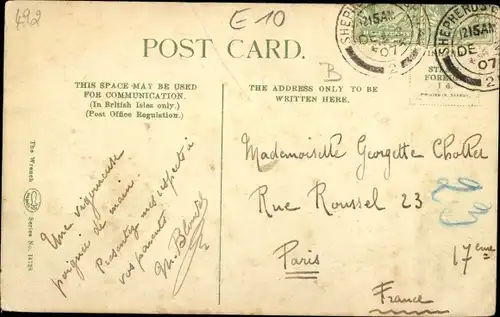 492
E 10
B
SHEPHERDS
12 15 AM
DE
07
2
SHEPHERDS
12 15 AM
DE
07
2
POST CARD.
THIS SPACE MAY BE USED
FOR COMMUNICATION.
(In British Isles only.)
(Post Office Regulation.)
THE ADDRESS ONLY TO BE
WRITTEN HERE.
The Wrench
Series No.
Une vigoureuse
poignée de main.
Presentez mes respects à
vos parents
Mademoiselle Georgette Chottet
Rue Roussel 23
Paris
17eme
France